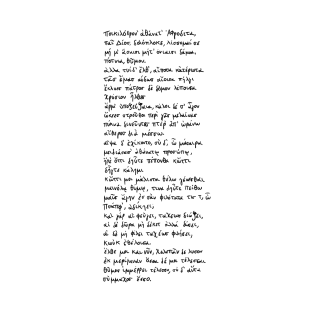 Ποικιλόθρον' ἀθάνατ' Ἀφρόδιτα,
παῖ Δίος δολόπλοκε, λίσσομαί σε
μή μ' ἄσαισι μήτ' ὀνίαισι δάμνα,
πότνια, θῦμον.
ἀλλά τυίδ' ἔλθ', αἴποτα κἀτέρωτα
τᾶς ἔμας αὔδως αἴοισα πήλγι
ἔκλυες πάτρος δὲ δόμον λίποισα
χρύσιον ἦλθες
ἄρμ' ὐποζεύξαια, κάλοι δέ σ' ἆγον
ὤκεες στροῦθοι περὶ γᾶς μελαίνας
πύκνα δινεῦντες πτέρ' ἀπ' ὠράνω
αἴθερος διὰ μέσσω.
αἶψα δ' ἐξίκοντο, σὺ δ', ὦ μάκαιρα
μειδιάσαισ' ἀθάνατῳ προσώπῳ,
ἤρε' ὄττι δηὖτε πέπονθα κὤττι
δηὖτε κάλημι
κὤττι μοι μάλιστα θέλω γένεσθαι
μαινόλᾳ θύμῳ, τίνα δηὖτε πείθω
μαῖς ἄγην ἐς σὰν φιλότατα τίς τ, ὦ
Ψάπφ', ἀδίκηει;
καὶ γάρ αἰ φεύγει, ταχέως διώξει,
αἰ δὲ δῶρα μὴ δέκετ ἀλλά δώσει,
αἰ δὲ μὴ φίλει ταχέως φιλήσει,
κωὐκ ἐθέλοισα.
ἔλθε μοι καὶ νῦν, χαλεπᾶν δὲ λῦσον
ἐκ μεριμνᾶν ὄσσα δέ μοι τέλεσσαι
θῦμος ἰμμέρρει τέλεσον, σὐ δ' αὔτα
σύμμαχος ἔσσο.